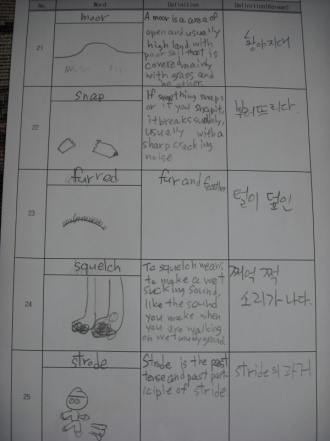 No. Word Definition Definition(Korean)
21
moor
A moor is a area of
open and usually
high land with
poor soil that is
covered mainly
with grass and
황야지대
22
snap
If something snaps
or if you snap it,
it breaks suddenly,
usually with a
sharp cracking
noise
부러뜨리다.
23
furred
fur and
털이 덮인
24
squelch
To squelch means
to make a wet
sucking sound,
like the sound
you make when
you are walking
on wet muddy ground.
쩌억 쩍
소리가 나다.
25
strode
Strode is the past
tense and past part
iciple of stride.
stride의 과거